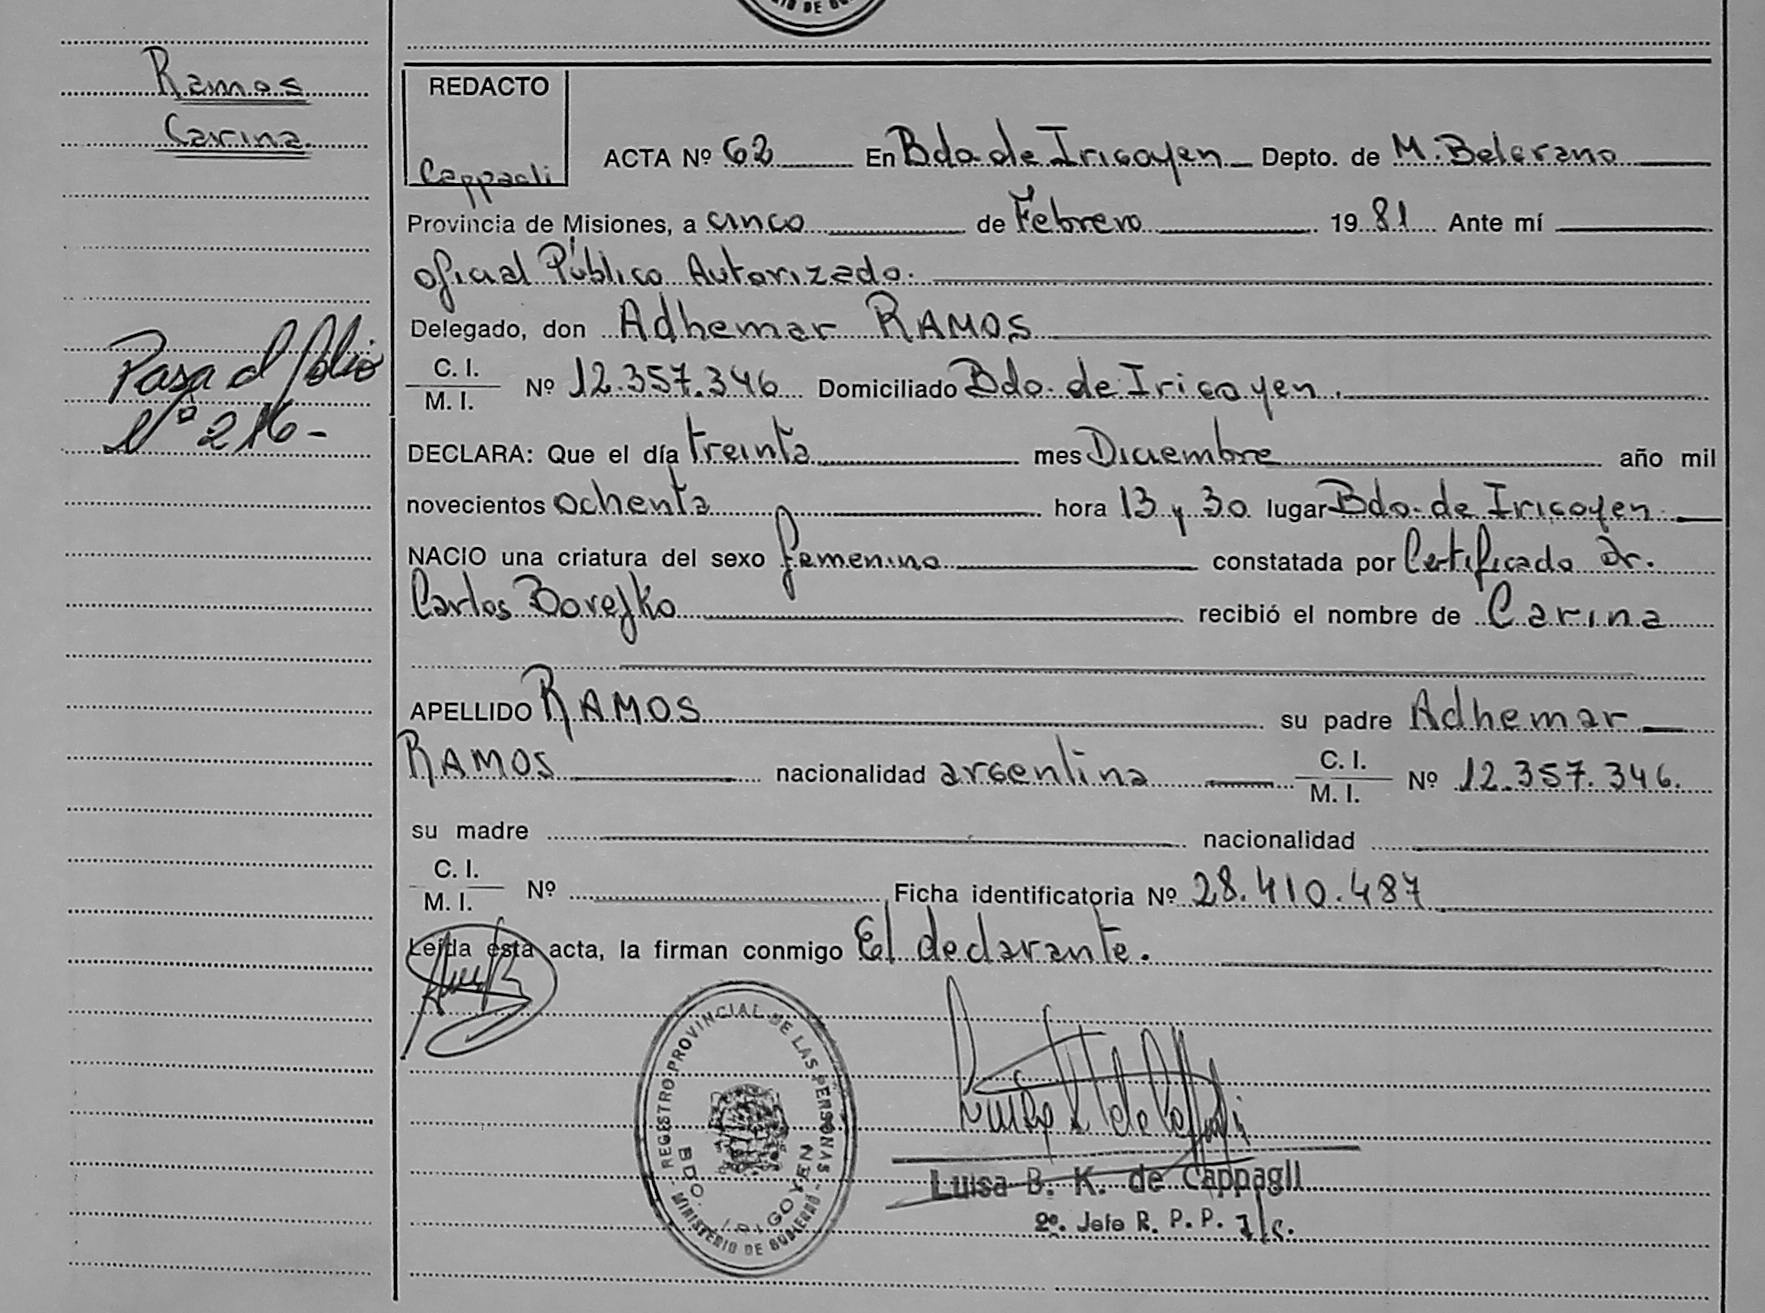 Ramos
Carina
Pasa al folio
Nº 216-
REDACTO
Cappagli
ACTA Nº 62 En Bdo de Irigoyen Depto. de M. Belgrano
Provincia de Misiones, a cinco de Febrero 19 81 Ante mí
oficial Público Autorizado.
Delegado, don Adhemar RAMOS
C. I.
M. I. Nº 12.357.346 Domiciliado Bdo. de Irigoyen.
DECLARA: Que el día treinta mes Diciembre año mil
novecientos ochenta hora 13 y 30 lugar Bdo. de Irigoyen.
NACIO una criatura del sexo femenino constatada por Certificado Dr.
Carlos Borejko recibió el nombre de Carina
APELLIDO RAMOS su padre Adhemar
RAMOS nacionalidad argentina C. I.
M. I. Nº 12.357.346.
su madre nacionalidad
C. I.
M. I. Nº Ficha identificatoria Nº 28.410.487
Leída esta acta, la firman conmigo El declarante.
REGISTRO PROVINCIAL DE LAS PERSONAS
BDO. IRIGOYEN
MINISTERIO DE GOBIERNO
Luisa B. K. de Cappagli
2º. Jefe R. P. P. a/c.